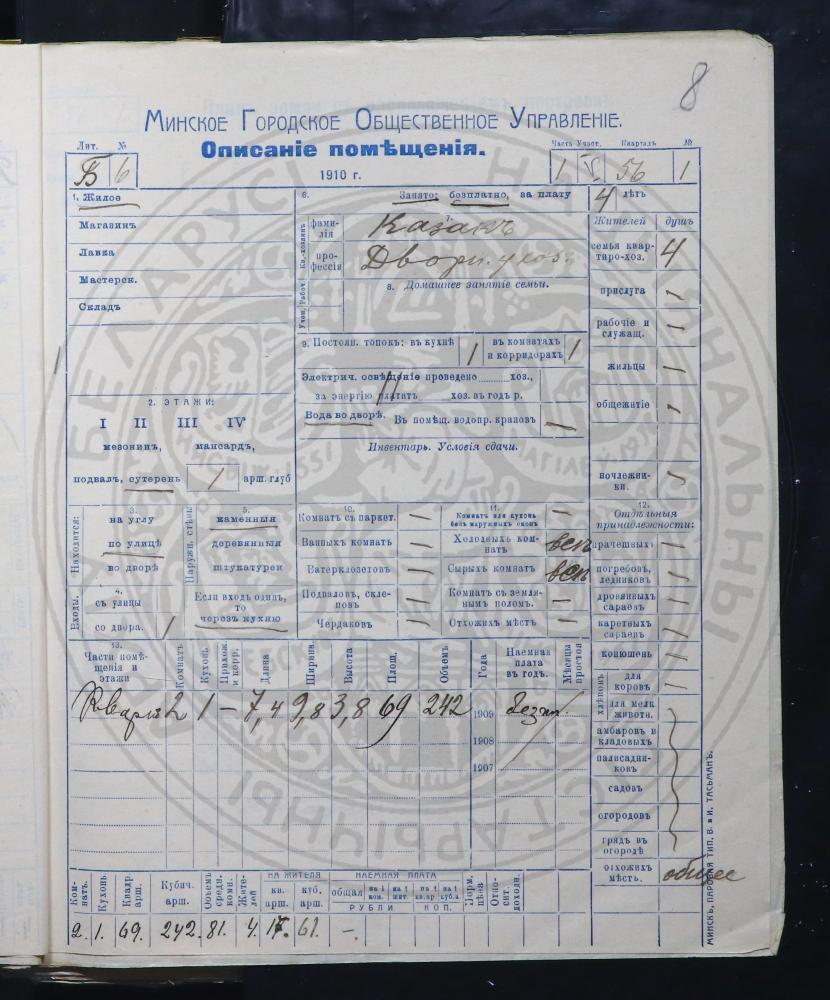 8
Минское Городское Общественное Управленіе.
Описаніе помѣщенія.
1910 г.
Лит. №
Б 6
Часть Участ. Кварталъ №
1 V. 56 1
1. Жилое
Магазинъ
Лавка
Мастерск.
Складъ
2. ЭТАЖИ:
I II III IV
мезонин, мансард,
подвал, сутерень 1 арш. глуб
6. Занято: безплатно, за плату 4 лѣтъ
Кв.-хозяинъ
фамилія
7.
Казакъ
профессія
Дворн. у хоз.
Учен. Рабоч.
8. Домашнее занятіе семьи.
9. Постоян. топок: въ кухнѣ 1 въ комнатахъ и корридорахъ 1
Электрич. освѣщеніе проведено хоз.,
за энергію платятъ хоз. въ годъ р.
Вода во дворѣ. Въ помѣщ. водопр. крановъ —
Инвентарь. Условія сдачи.
Жителей душъ
семья квартиро-хоз. 4
прислуга
рабочіе и служащ.
жильцы
общежитіе
ночлежники.
Находится:
3.
на углу
по улицѣ
во дворѣ
Входы.
4.
съ улицы
со двора. 1
Наружн. стѣны
5.
каменныя
деревянныя
штукатурен
Если входъ одинъ, то
через кухню
10.
Комнатъ съ паркет.
Ванныхъ комнатъ
Ватерклозетовъ
Подваловъ, склеповъ
Чердаковъ
11.
Комнатъ или кухонь безъ наружныхъ оконъ —
Холодныхъ комнатъ
Сырыхъ комнатъ
Комнатъ съ землянымъ поломъ. —
Отхожихъ мѣстъ
12.
Отдѣльныя принадлежности:
прачешныхъ
погребовъ, ледниковъ
дровяныхъ сараевъ
каретныхъ сараевъ
конюшень
хлѣвовъ
для коровъ
для мелк. животн.
амбаровъ и кладовыхъ
палисадниковъ
садовъ
огородовъ
грядъ въ огородѣ
отхожихъ мѣстъ. общее
13.
Части помѣщенія и этажи Комнатъ Кухонь Прихож. и корр. Длина Ширина Высота Площ. Объемъ Года Наемная плата въ годъ. Мѣсяцы простоя
Кварт. 2 1 — 7,4 9,8 3,8 69 242 1909 безпл.
1908
1907
Комнатъ. Кухонь. Квадр. арш. Кубич. арш. Объемъ средн. комн. Жителей НА ЖИТЕЛЯ кв. арш. куб. арш. НАЕМНАЯ ПЛАТА общая на 1 ком. на 1 жит. на 1 кв. ар. на 1 куб. а. РУБЛИ КОП. Норм. цѣна Относит. доходн.
2. 1. 69. 242. 81. 4. 17. 61. —.
МИНСКЪ, ПАРОВАЯ ТИП. В. и И. ТАСЬМАНЪ.